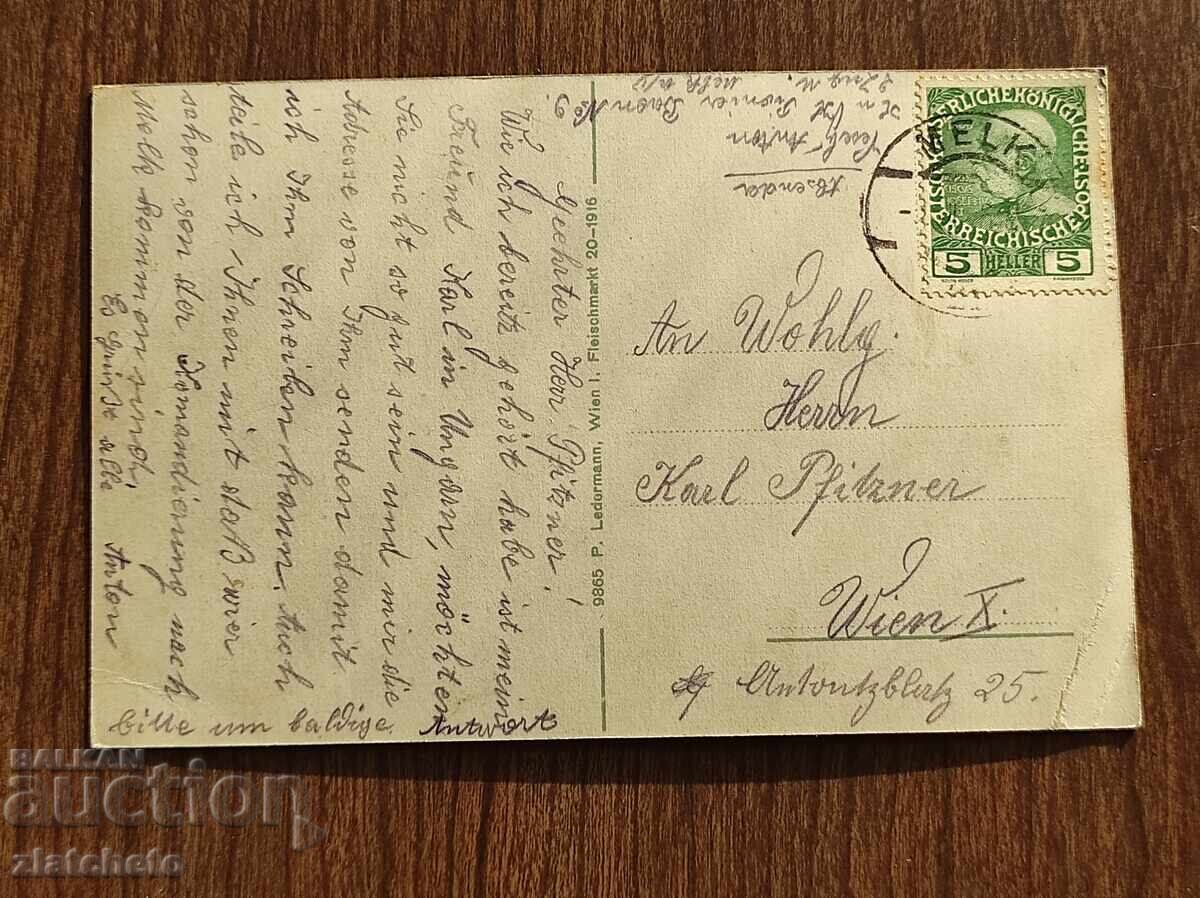 Geehrter Herr Pfitzner!
Wie ich bereitz gehört habe ist mein
Freund Karl in Ungarn, möchten
Sie nicht so gut sein und mir die
Adresse von Ihm senden damit
ich Ihm Schreiben kann. Auch
teile ich Ihnen mit daß wier
schon von der Komandierung nach
Melk kommen sind,
Es grüßt alle
Anton
bitte um baldige Antwort
9865 P. Ledermann, Wien I. Fleischmarkt 20-1916
Absender
Anton
Pionier Baon No 9.
Melk a/D
MELK
KAISERLICHEKÖNIGLICHE
ÖSTERREICHISCHEPOST
5 HELLER 5
An Wohlg.
Herrn
Karl Pfitzner
Wien X.
Antonsblatz 25.
BALKAN
auction
zlatcheto